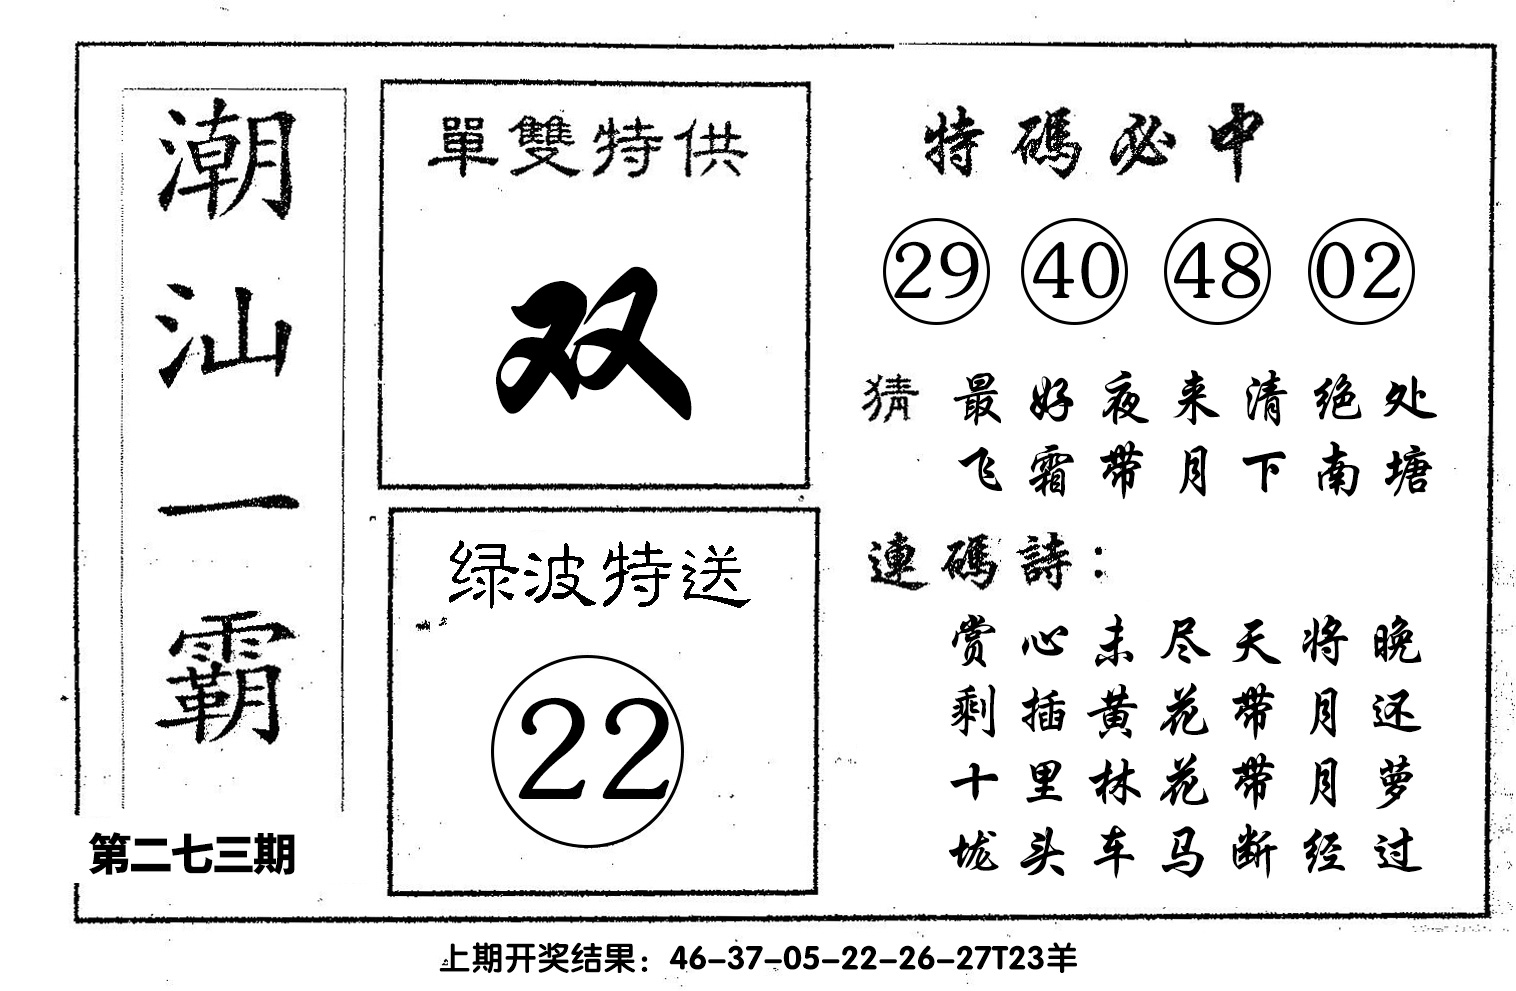 潮汕一霸
第二七三期
單雙特供
双
绿波特送
22
特碼必中
29 40 48 02
猜 最好夜来清绝处
飞霜带月下南塘
連碼詩：
赏心未尽天将晚
剩插黄花带月还
十里林花带月萝
垅头车马断经过
上期开奖结果：46-37-05-22-26-27T23羊